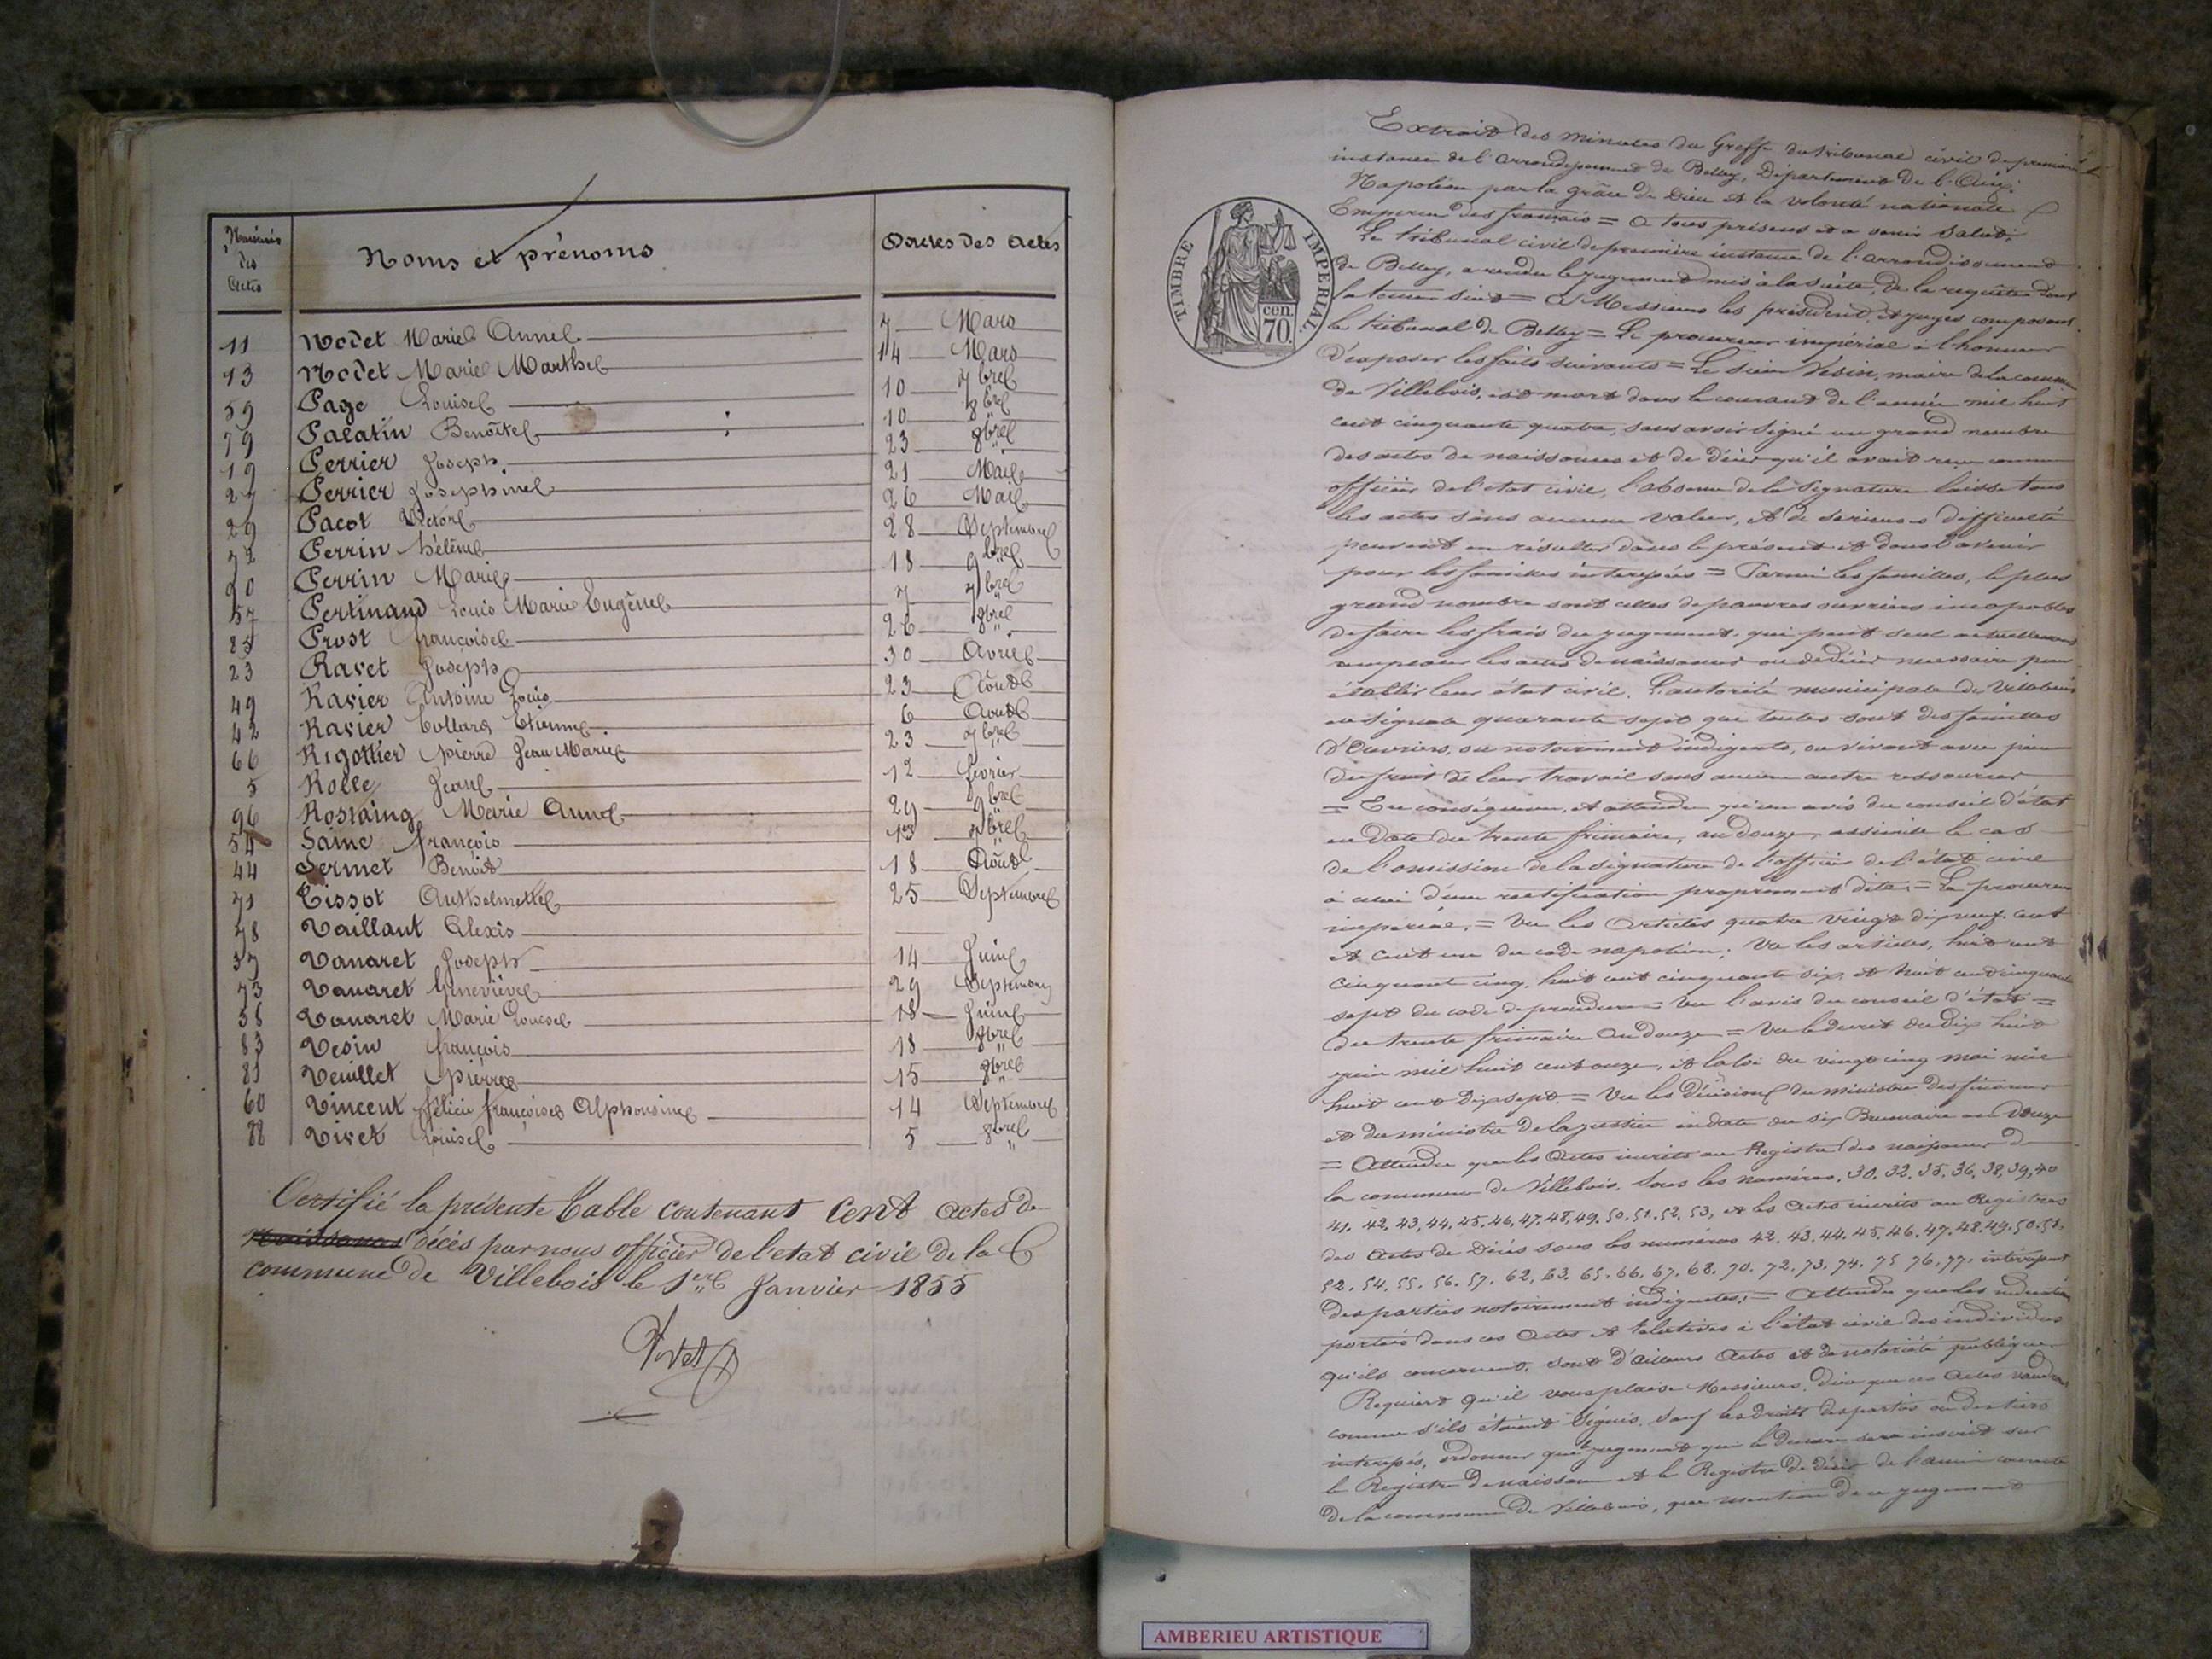 Numéros des Actes
Noms et prénoms
Dactes des Actes
11 Nodet Marie Anne 7 Mars
13 Nodet Marie Marthe 14 Mars
59 Page Louise 10 7bre
79 Palatin Benoîte 10 8bre
19 Perrier Joseph 23 8bre
27 Perrier Josephine 21 Mai
29 Pacot Victor 26 Mai
72 Perrin hélène 28 Septembre
90 Perrin Marie 18 9bre
57 Pertinand Louis Marie Eugène 7 7bre
85 Prost françoise 26 8bre
23 Ravet Joseph 30 Avril
49 Ravier Antoine Louis 23 Août
42 Ravier Collard Etienne 6 Août
66 Rigottier pierre Jean Marie 23 7bre
5 Rolle Jean 12 fevrier
96 Rostaing Marie Anne 29 9bre
54 Saine françois 1er 7bre
44 Sermet Benoit 18 Août
71 Tissot Anthelmette 25 Septembre
78 Vaillant Alexis
37 Vanaret Joseph 14 Juin
73 Vanaret Geneviève 29
38 Vanaret Marie Louise 18 Juin
83 Vesin françois 18 8bre
81 Veuillet pierre 15 8bre
60 Vincent félicie françoise Alphonsine 14 Septembre
88 Vivet Louise 5 8bre
Certifié la présente Table contenant cent actes de
Naissances décès par nous officier de l'etat civil de la
commune de Villebois le 1er Janvier 1855
Vivet
TIMBRE IMPERIAL
cen. 70.
Extrait des minutes du Greffe du tribunal civil de première
instance de l'arrondissement de Belley, Département de l'Ain.
Napoléon par la grâce de Dieu et la volonté nationale
Empereur des français = A tous présens et a venir salut.
Le tribunal civil de première instance de l'arrondissement
de Belley, a rendu le jugement mis à la suite de la requête dont
la teneur suit = A Messieurs les président et juges composant
le tribunal de Belley = Le procureur impérial à l'honneur
d'exposer les faits suivants = Le sieur Vésin, maire de la commune
de Villebois, est mort dans le courant de l'année mil huit
cent cinquante quatre, sans avoir signé un grand nombre
des actes de naissances et de décès qu'il avait reçu comme
officier de l'état civil, l'absence de la signature laisse tous
les actes sans aucune valeur, et de serieuses difficultés
peuvent en résulter dans le présent et dans l'avenir
pour les familles intéressées = Parmi les familles, le plus
grand nombre sont celles de pauvres ouvriers incapables
de faire les frais du jugement, qui peut seul actuellement
remplacer les actes de naissances ou de décès necessaire pour
établir leur état civil. L'autorité municipale de Villebois
en signale quarante sept que toutes sont des familles
d'ouvriers, ou notoirement indigents, ou vivant avec peine
du fruit de leur travail sans aucune autre ressources
= En conséquence, et attendu qu'un avis du conseil d'état
en date du trente frimaire, an douze, assimile le cas
de l'omission de la signature de l'officier de l'état civil
à celui d'une rectification proprement dite = Le procureur
impérial, = Vu les articles quatre vingt dix neuf, cent
et cent un du code napoléon; Vu les articles, huit cent
cinquante cinq, huit cent cinquante six, et huit cent cinquante
sept du code de procédure = Vu l'avis du conseil d'état =
du trente frimaire an douze = Vu le décret du dix huit
juin mil huit cent onze, et la loi du vingt cinq mai mil
huit cent dix sept. = Vu les décisions du ministre des finances
et du ministre de la justice en date du six Brumaire an douze
= Attendu que les actes inscrits au Registre des naissances de
la commune de Villebois, sous les numéros, 30, 32, 35, 36, 38, 39, 40
41. 42. 43, 44. 45. 46, 47. 48, 49. 50. 51. 52. 53, et les Actes inscrits au Registres
des Actes de Décès sous les numéros 42. 43. 44. 45. 46. 47. 48. 49. 50. 51.
52. 54. 55. 56. 57. 62, 63. 65. 66. 67. 68. 70. 72. 73. 74. 75 76. 77. intéressent
des parties notoirement indigentes; = Attendu que les indications
portées dans ces Actes et relatives à l'état civil des individus
qu'ils concernent, sont d'ailleurs de notoriété publique
Requiert qu'il vous plaise Messieurs, dire que ces Actes vaudront
comme s'ils étaient signés, sauf les droits des parties ou des tiers
intéressés, ordonner que le jugement qui le décidera sera inscrit sur
le Registre de naissance et le Registre de décès de l'année courante
de la commune de Villebois, que mention de ce jugement
AMBERIEU ARTISTIQUE